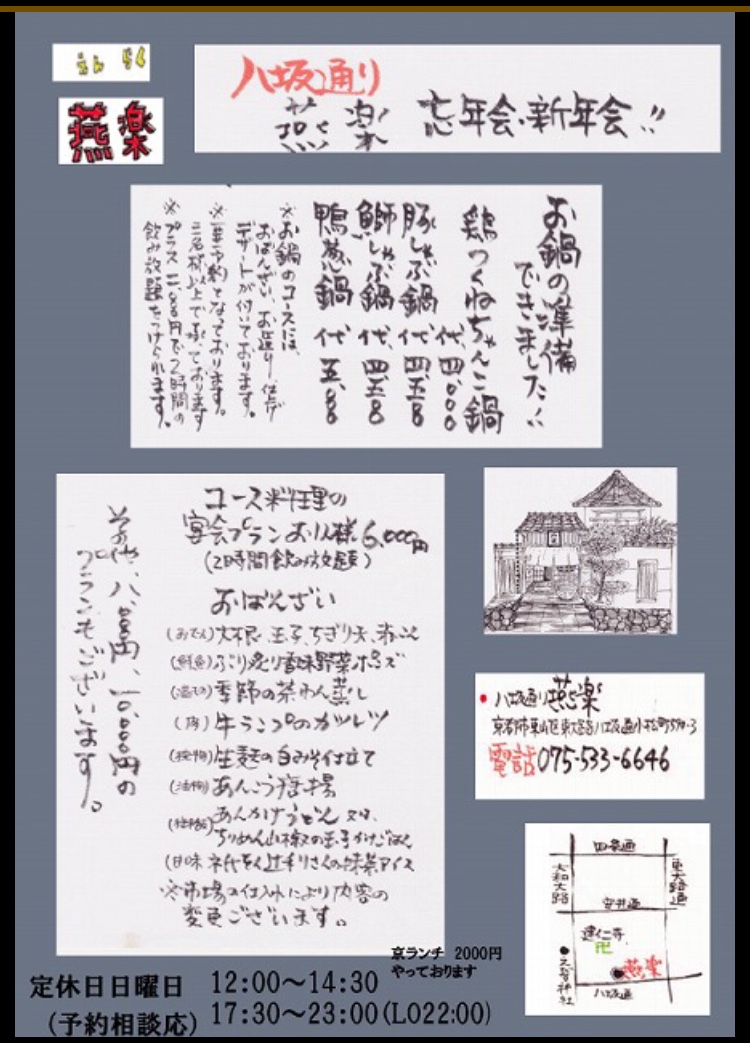 えんらく
燕楽
八坂通り
燕楽 忘年会・新年会!!
お鍋の準備
できました!!
鶏つくねちゃんこ鍋
代、四、000
豚しゃぶ鍋 代、四、五00
鰤しゃぶ鍋 代、四、五00
鴨葱鍋 代 五、00
※お鍋のコースには、
おばんざい、お造り、仕上げ
デザートが付いております。
※要予約となっております。
二名様以上で承っております
※プラス二、000円で2時間の
飲み放題をつけられます。
コース料理の
宴会プランお1人様6,000円
(2時間飲み放題)
おばんざい
(おでん)大根、玉子、ちぎり天、
(鮮魚)ぶり炙り香味野菜ポンズ
(温物)季節の茶わん蒸し
(肉)牛ランプのカツレツ
生麩の白みそ仕立て
(油物)あんこう唐揚
あんかけうどん 又は、
ちりめん山椒の玉子かけごはん
(甘味 抹茶アイス
※市場の仕入れにより内容の
変更ございます。
その他、八、000円、一0,000円の
プランもございます。
八坂通り燕楽
京都市東山区東大路八坂通小松町570-3
電話075-533-6646
四条通
大和大路
東大路通
安井通
建仁寺
卍
燕楽
八坂通
京ランチ 2000円
やっております
定休日日曜日 12:00〜14:30
(予約相談応) 17:30〜23:00(LO22:00)